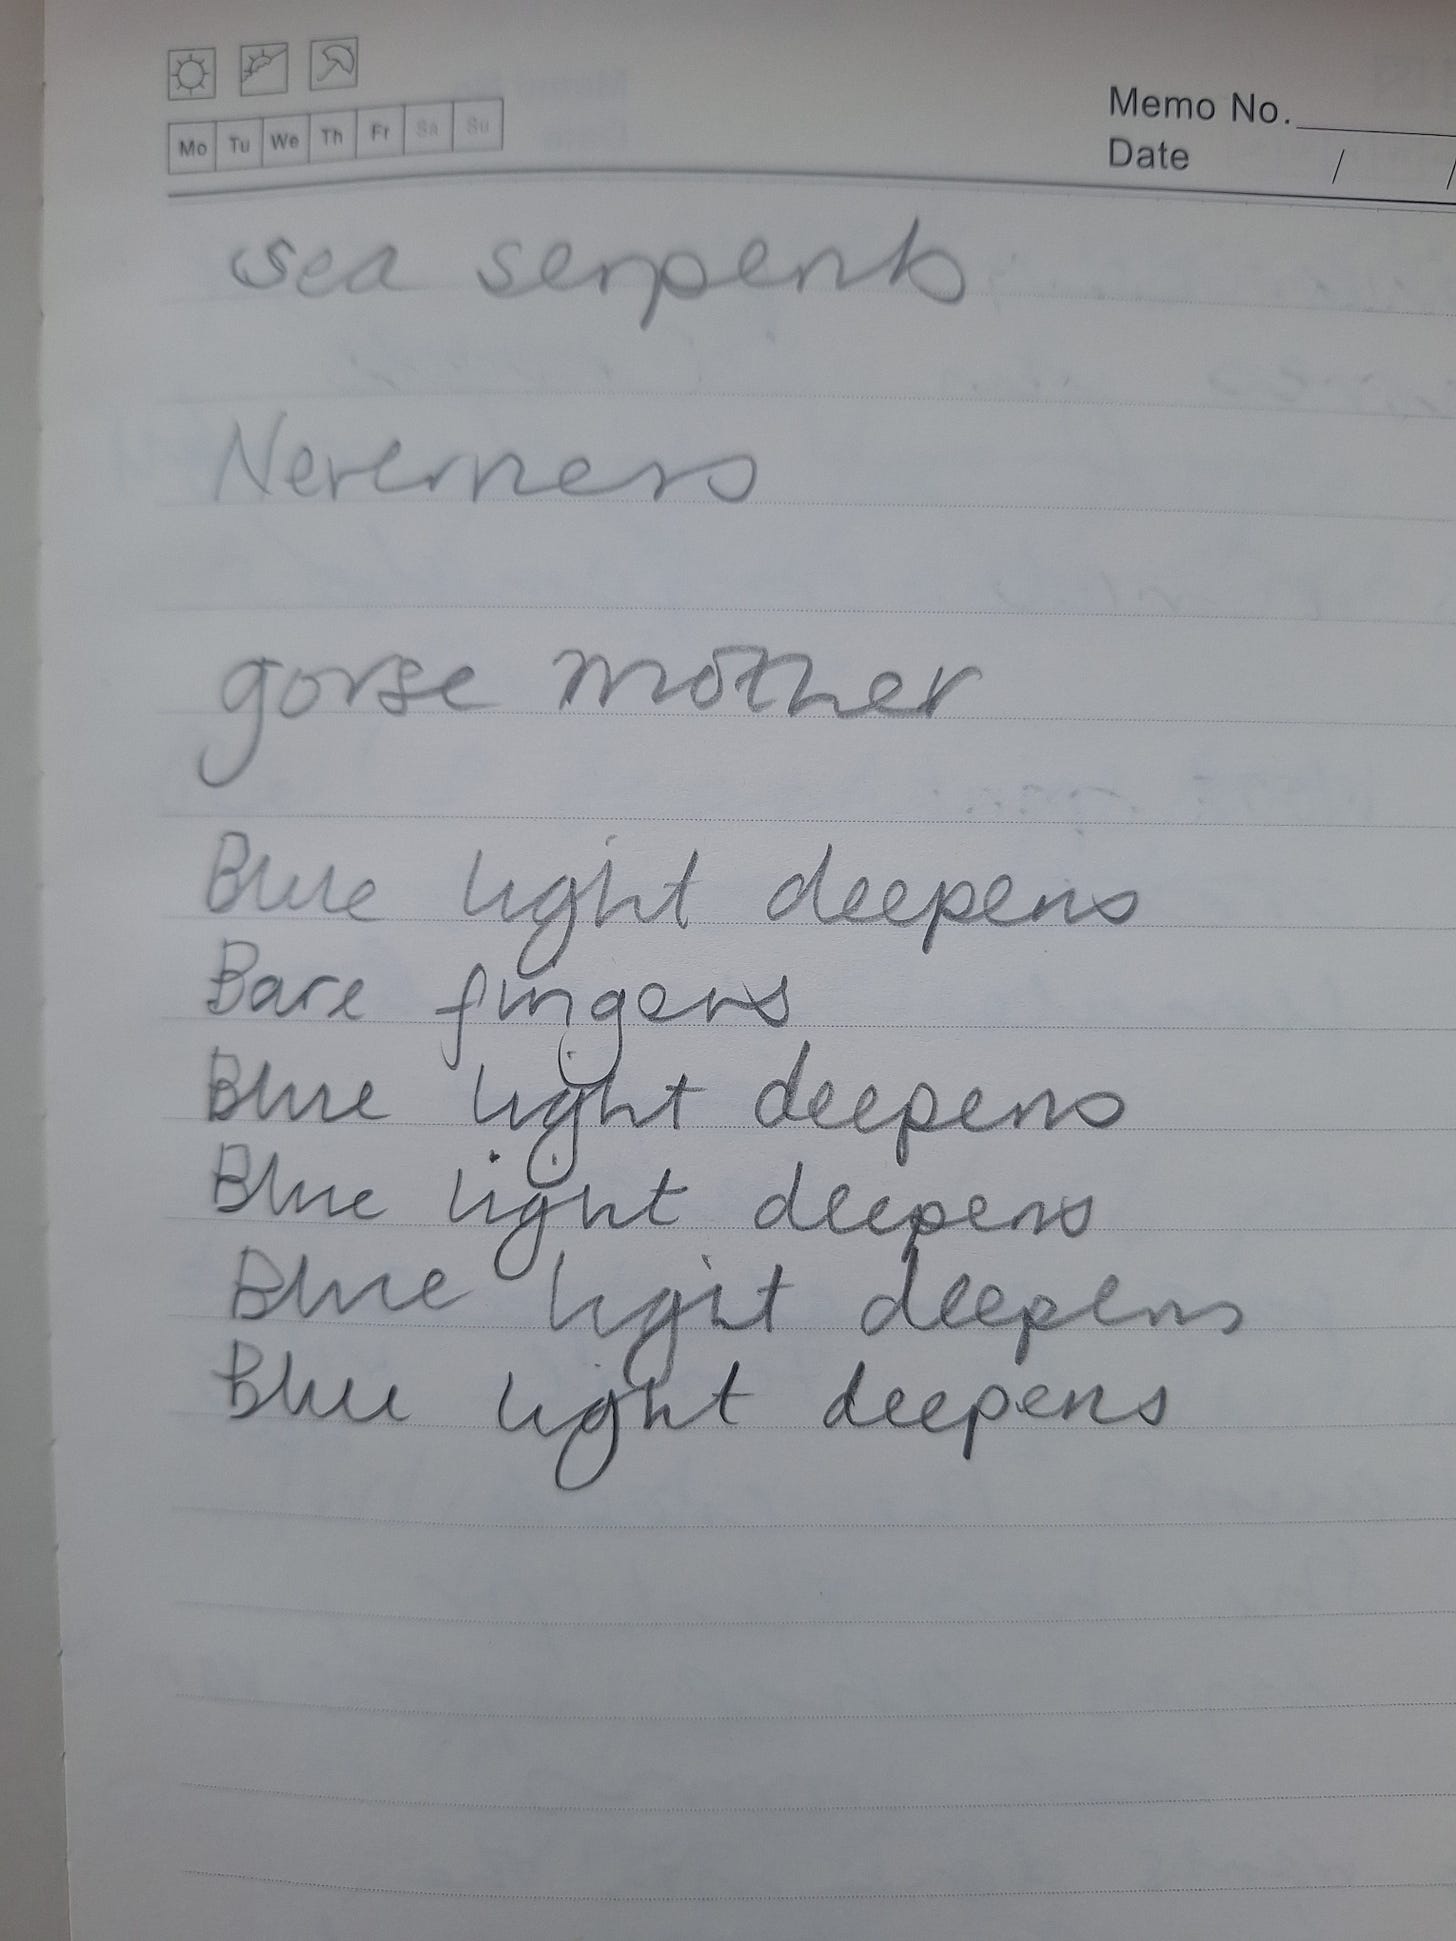 Mo Tu We Th Fr Sa Su
Memo No.
Date / /
sea serpents
Neverness
gorse mother
Blue light deepens
Bare fingers
Blue light deepens
Blue light deepens
Blue light deepens
Blue light deepens